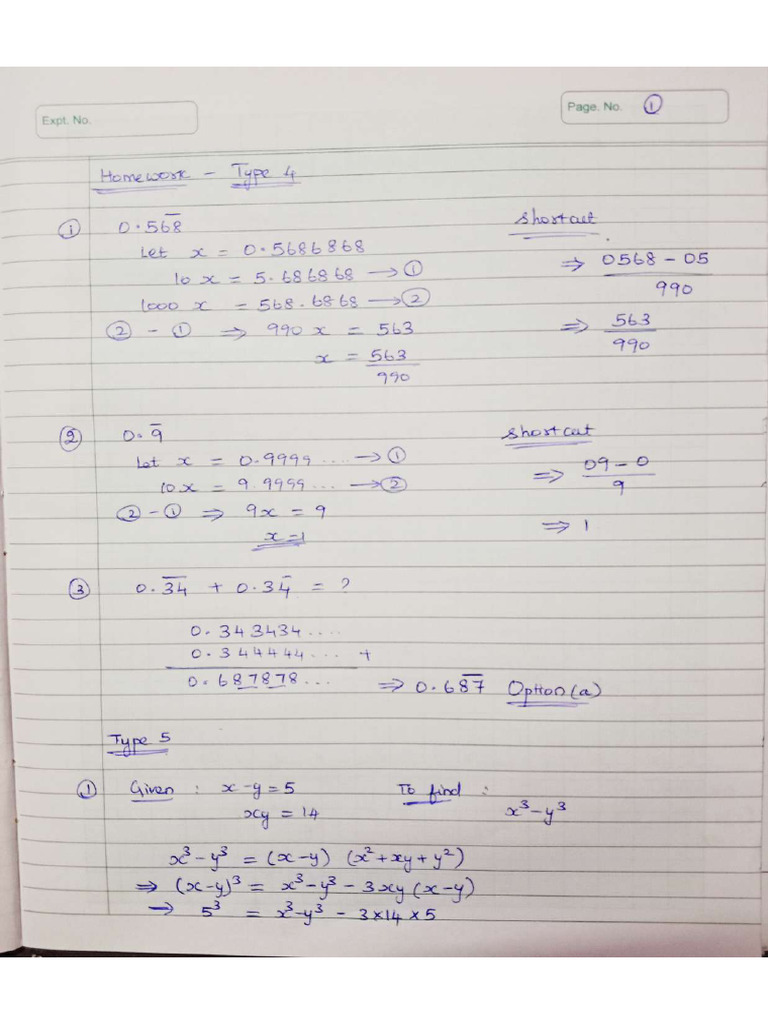 Expt. No.
Page. No. ①
Homework - Type 4
① 0.56̅8̅
Let x = 0.5686868
10 x = 5.686868 → ①
1000 x = 568.6868 → ②
② - ① ⇒ 990 x = 563
x = 563/990
Shortcut
⇒ 0568 - 05 / 990
⇒ 563/990
② 0.9̅
Let x = 0.9999 .... → ①
10x = 9.9999 ... → ②
② - ① ⇒ 9x = 9
x = 1
Shortcut
⇒ 09 - 0 / 9
⇒ 1
③ 0.3̅4̅ + 0.34̅ = ?
0.343434 ....
0.344444 ... +
0.687878 ... ⇒ 0.68̅7̅ Option (a)
Type 5
① Given : x - y = 5 To find :
xy = 14 x³ - y³
x³ - y³ = (x - y) (x² + xy + y²)
⇒ (x - y)³ = x³ - y³ - 3xy (x - y)
→ 5³ = x³ - y³ - 3 × 14 × 5